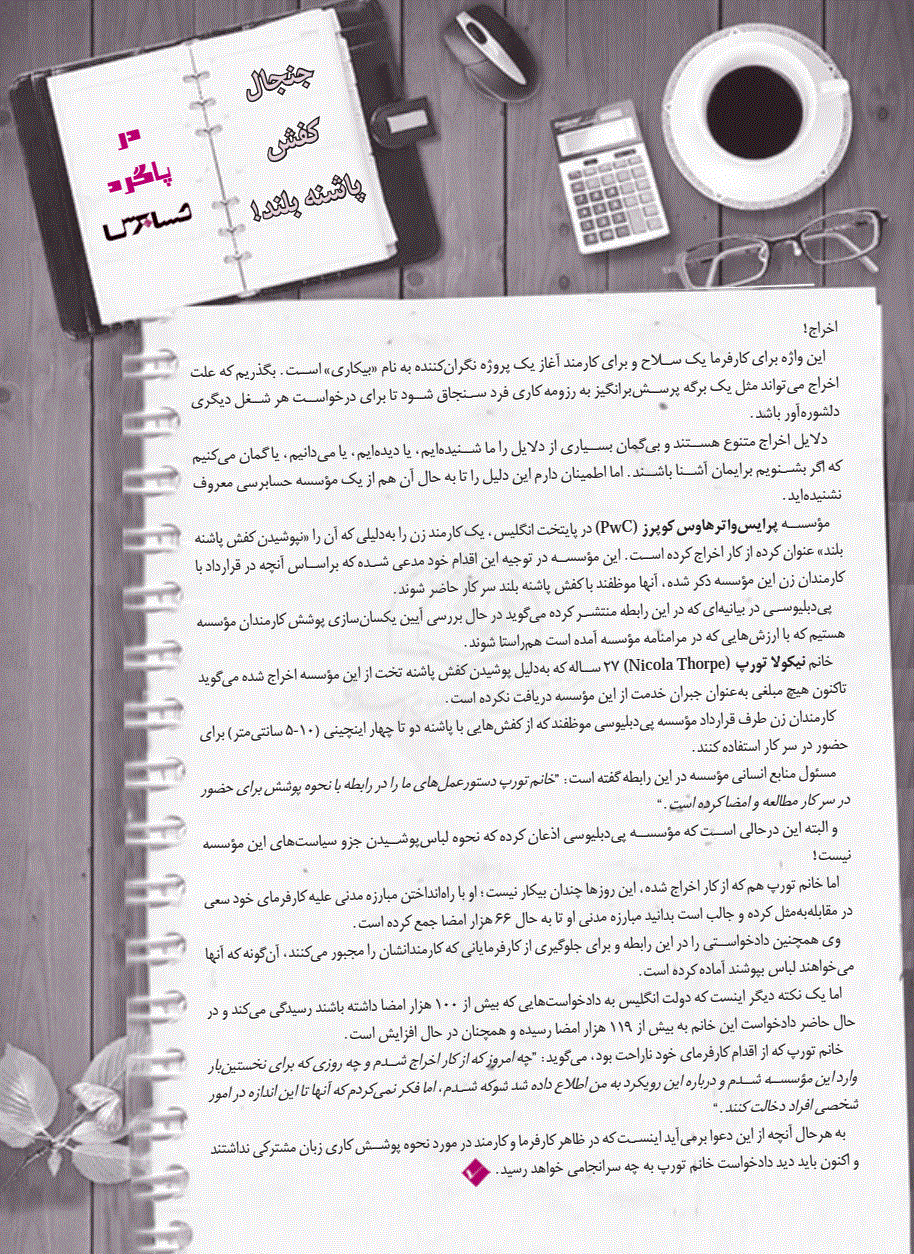 جنجال
کفش
پاشنه بلند!
در
پاگرد
حسابرس
اخراج!
این واژه برای کارفرما یک سلاح و برای کارمند آغاز یک پروژه نگران‌کننده به نام «بیکاری» است. بگذریم که علت
اخراج می‌تواند مثل یک برگه پرسش‌برانگیز به رزومه کاری فرد سنجاق شود تا برای درخواست هر شغل دیگری
دلشوره‌آور باشد.
دلایل اخراج متنوع هستند و بی‌گمان بسیاری از دلایل را ما شنیده‌ایم، یا دیده‌ایم، یا می‌دانیم، یا گمان می‌کنیم
که اگر بشنویم برایمان آشنا باشند. اما اطمینان دارم این دلیل را تا به حال آن هم از یک مؤسسه حسابرسی معروف
نشنیده‌اید.
مؤسسه پرایس‌واترهاوس کوپرز (PwC) در پایتخت انگلیس، یک کارمند زن را به‌دلیلی که آن را «نپوشیدن کفش پاشنه
بلند» عنوان کرده از کار اخراج کرده است. این مؤسسه در توجیه این اقدام خود مدعی شده که براساس آنچه در قرارداد با
کارمندان زن این مؤسسه ذکر شده، آنها موظفند با کفش پاشنه بلند سر کار حاضر شوند.
پی‌دبلیوسی در بیانیه‌ای که در این رابطه منتشر کرده می‌گوید در حال بررسی آیین یکسان‌سازی پوشش کارمندان مؤسسه
هستیم که با ارزش‌هایی که در مرامنامه مؤسسه آمده است هم‌راستا شوند.
خانم نیکولا تورپ (Nicola Thorpe) ۲۷ ساله که به‌دلیل پوشیدن کفش پاشنه تخت از این مؤسسه اخراج شده می‌گوید
تاکنون هیچ مبلغی به‌عنوان جبران خدمت از این مؤسسه دریافت نکرده است.
کارمندان زن طرف قرارداد مؤسسه پی‌دبلیوسی موظفند که از کفش‌هایی با پاشنه دو تا چهار اینچینی (۱۰-۵ سانتی‌متر) برای
حضور در سر کار استفاده کنند.
مسئول منابع انسانی مؤسسه در این رابطه گفته است: "خانم تورپ دستورعمل‌های ما را در رابطه با نحوه پوشش برای حضور
در سر کار مطالعه و امضا کرده است."
و البته این درحالی است که مؤسسه پی‌دبلیوسی اذعان کرده که نحوه لباس‌پوشیدن جزو سیاست‌های این مؤسسه
نیست!
اما خانم تورپ هم که از کار اخراج شده، این روزها چندان بیکار نیست؛ او با راه‌انداختن مبارزه مدنی علیه کارفرمای خود سعی
در مقابله‌به‌مثل کرده و جالب است بدانید مبارزه مدنی او تا به حال ۶۶ هزار امضا جمع کرده است.
وی همچنین دادخواستی را در این رابطه و برای جلوگیری از کارفرمایانی که کارمندانشان را مجبور می‌کنند، آن‌گونه که آنها
می‌خواهند لباس بپوشند آماده کرده است.
اما یک نکته دیگر اینست که دولت انگلیس به دادخواست‌هایی که بیش از ۱۰۰ هزار امضا داشته باشند رسیدگی می‌کند و در
حال حاضر دادخواست این خانم به بیش از ۱۱۹ هزار امضا رسیده و همچنان در حال افزایش است.
خانم تورپ که از اقدام کارفرمای خود ناراحت بود، می‌گوید: "چه امروز که از کار اخراج شدم و چه روزی که برای نخستین‌بار
وارد این مؤسسه شدم و درباره این رویکرد به من اطلاع داده شد شوکه شدم، اما فکر نمی‌کردم که آنها تا این اندازه در امور
شخصی افراد دخالت کنند."
به هرحال آنچه از این دعوا برمی‌آید اینست که در ظاهر کارفرما و کارمند در مورد نحوه پوشش کاری زبان مشترکی نداشتند
و اکنون باید دید دادخواست خانم تورپ به چه سرانجامی خواهد رسید.